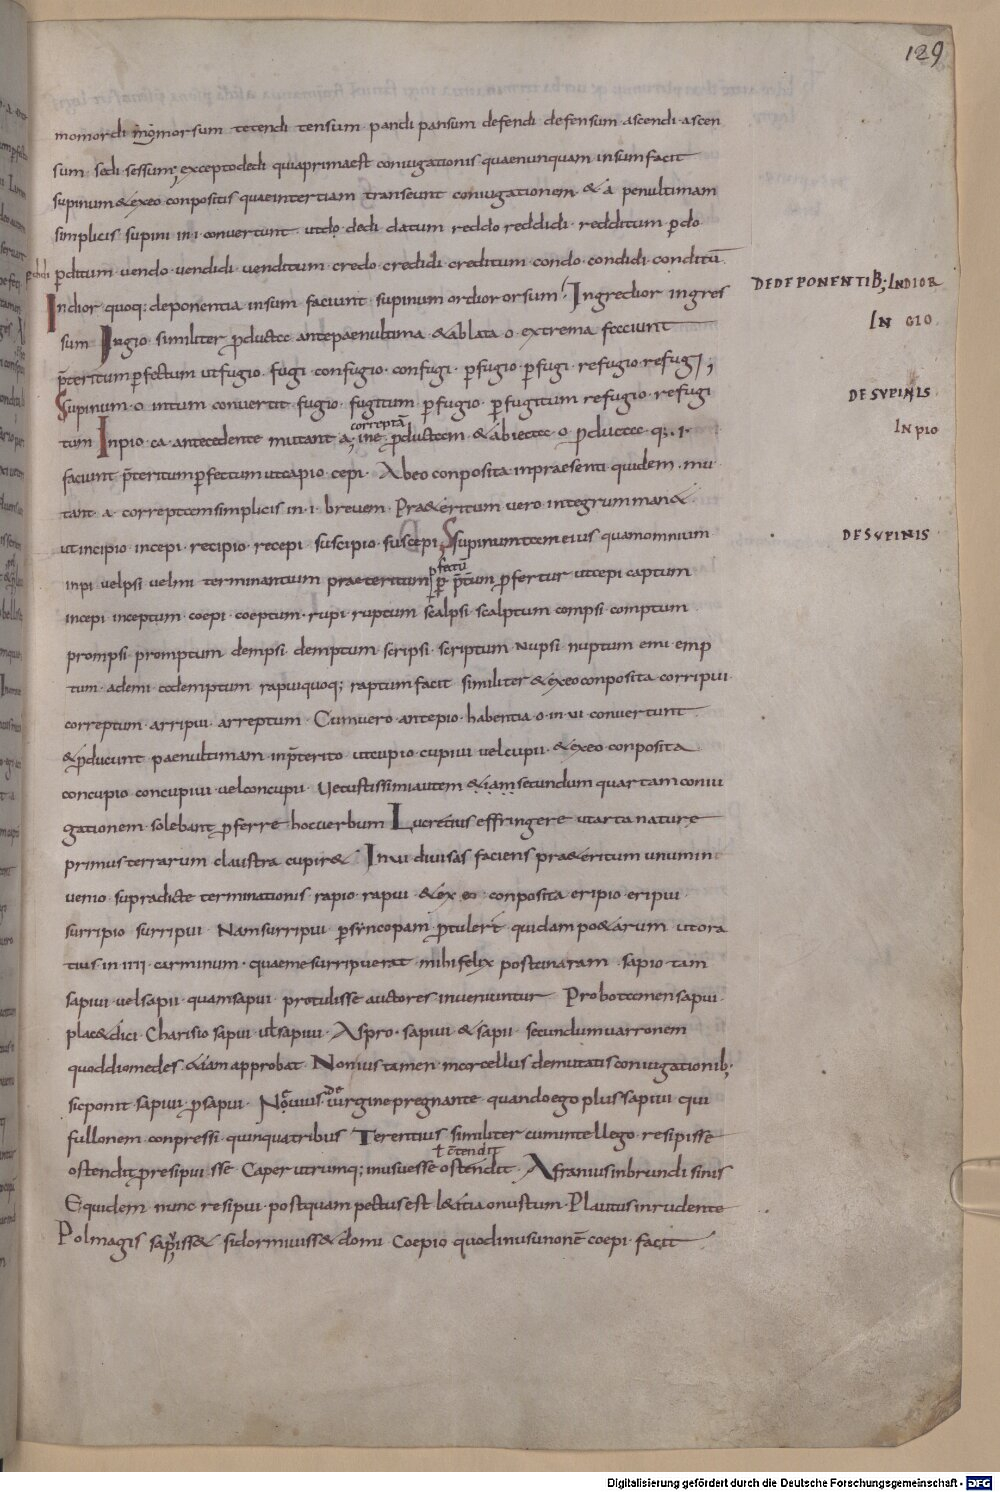 129
momordi morsum tetendi tensum pandi pansum defendi defensum ascendi ascen
sum · sedi sessum; exceptodedi quiaprimaest coniugationis quaenunquam insumfacit
supinum & exeo conpositis quaeintertiam transeunt coniugationem · & a penultimam
simplicis supini in i convertunt utdo dedi datum reddo reddidi · redditum p̄do
p̄didi
p̄ditum vendo vendidi venditum credo credidi creditum condo condidi conditū
Indior quoq: deponentia insum faciunt supinum ordior orsum · Ingredior ingres
DEDEPONENTIB; INDIOR
sum Ingio similiter p̄ductae antepaenultima & ablata o extrema faciunt
IN GIO
p̄teritump̄fectum utfugio · fugi confugio · confugi · p̄fugio p̄fugi · refugio refugi;
Supinum o intum convertit fugio · fugitum p̄fugio · p̄fugitum refugio refugi
DE SUPINIS
correptā
tum Inpio ca antecedente mutant a, ine p̄ductam & abiecta o p̄ducta q; · i ·
IN pio
faciunt p̄teritump̄fectum utcapio cepi · Abeo conposita inpraesenti quidem · mu
tant · a · correptamsimplicis in · i · brevem · Pra&eritum vero integrumman&
utincipio incepi · recipio recepi suscipio suscepi Supinumtam eius quamomnium
DESUPINIS
inpi velpsi velmi terminantium praeteritum p̄ p̄tum p̄fertur utcepi captum
p̄fectū
incepi inceptum · coepi · coeptum · rupi ruptum scalpsi scalptum compsi comptum
prompsi promptum dempsi demptum scripsi scriptum nupsi nuptum emi emp
tum · ademi ademptum rapuiquoq; raptumfacit similiter & exeoconposita corripui
correptum · arripui · arreptum · Cumvero · antepio · habentia · o · in · vi convertunt
& p̄ducunt paenultimam inp̄terito utcupio cupiui velcupii · & exeo conposita
concupio concupiui velconcupii Vetustissimiautem &iamsecundum quartamconiu
gationem solebant p̄ferre hocverbum Lucretius effringere utarta nature
primusterrarum claustra cupir& Inxui divisas faciens pra&eritum unumin
venio supradicte terminationis rapio · rapui · & ex eo conposita eripio eripui ·
surripio surripui Namsurripui p̄syncopam p̄tulert quidampo&arum utora
tius in IIII · carminum · quaemesurripuerat · mihifelix postcinaram · sapio tam
sapiui velsapii quamsapui protulisse auctores inveniuntur Probotamensapui
plac&dici · Charisio sapui ul̄sapiui · Aspro · sapiui & sapii secundumvarronem
quoddiomedes &iamapprobat · Nonius tamen marcellus demutatisconiugationib;
sicponit sapiui p̄sapui · Novius · de virginepregnante quandoego plussapiui qui
fullonem conpressi · quinquatribus Terentius similiter cumintellego · resipisse
ostendit p̄resipuisse Caper utrumq; inusuesse ostendit · Afraniusinbrundisinis
ł c̄tendit
Equidem nunc resipui · postquampectusest l&itia onustum · Plautusinrudente
Polmagis sapiss& sidormiuiss& domi Coepio quodinusunonē coepi facit
Digitalisierung gefördert durch die Deutsche Forschungsgemeinschaft · DFG